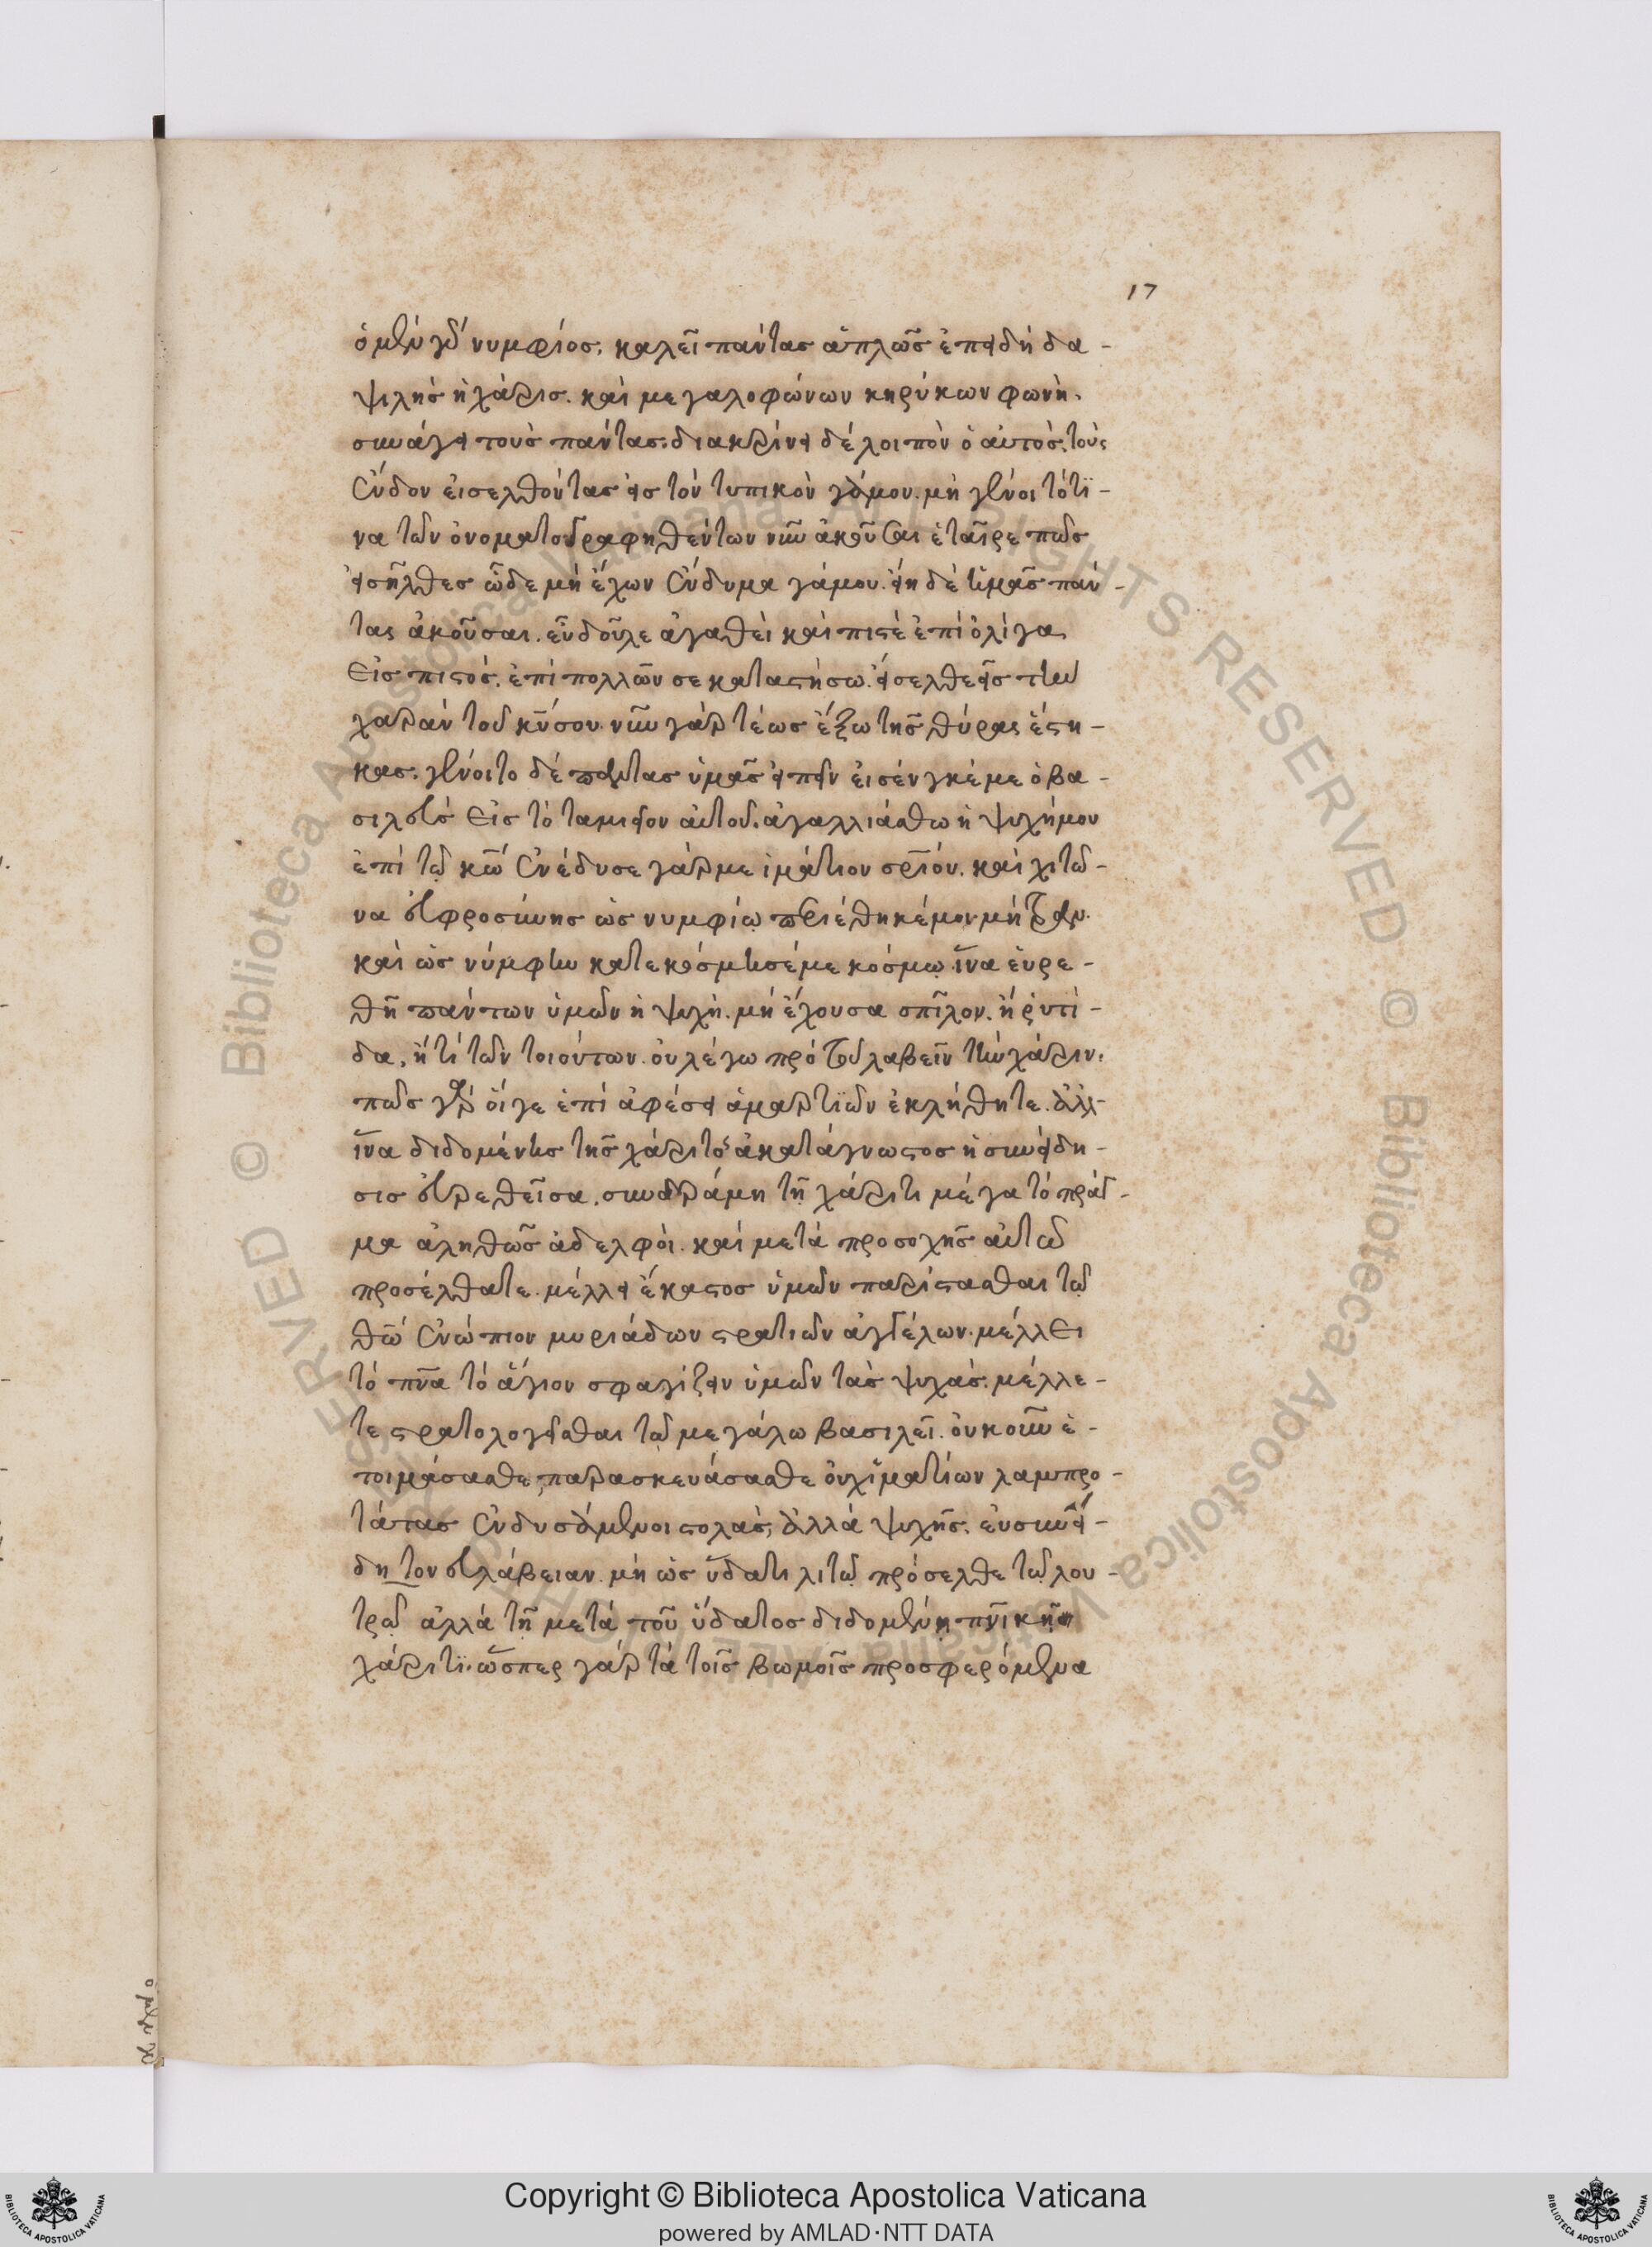 17
ὁ μὲν γὰρ νυμφίος, καλεῖ πάντας ἁπλῶς ἐπειδὴ δα-
ψιλὴς ἡ χάρις. καὶ μεγαλοφώνων κηρύκων φωνὴ.
συνάγει τοὺς πάντας. διακρίνει δὲ λοιπὸν ὁ αὐτὸς, τοὺς
ἔνδον εἰσελθόντας εἰς τὸν τυπικὸν γάμον. μὴ γένοιτό τι-
να τῶν ὀνοματογραφηθέντων νῦν ἀκοῦσαι ἑταῖρε πῶς
εἰσῆλθες ὧδε μὴ ἔχων ἔνδυμα γάμου. εἴη δὲ ὑμᾶς πάν-
τας ἀκοῦσαι. εὖ δοῦλε ἀγαθὲ καὶ πιστὲ ἐπὶ ὀλίγα
εἶς πιστός. ἐπὶ πολλῶν σε καταστήσω. εἴσελθε εἰς τὴν
χαρὰν τοῦ κυ σου. νῦν γὰρ τέως ἔξω τῆς θύρας ἕστη-
κας. γένοιτο δὲ πάντας ὑμᾶς εἰπεῖν εἰσένεγκέ με ὁ βα-
σιλεὺς εἰς τὸ ταμιεῖον αὐτοῦ. ἀγαλλιάσθω ἡ ψυχή μου
ἐπὶ τῷ κω ἐνέδυσε γάρ με ἱμάτιον σριον. καὶ χιτῶ-
να εὐφροσύνης ὡς νυμφίῳ περιέθηκέ μοι μίτραν.
καὶ ὡς νύμφην κατεκόσμησέ με κόσμῳ. ἵνα εὑρε-
θῇ πάντων ὑμῶν ἡ ψυχὴ. μὴ ἔχουσα σπῖλον. ἢ ῥυτί-
δα, ἤ τι τῶν τοιούτων. οὐ λέγω πρὸ τοῦ λαβεῖν τὴν χάριν.
πῶς γὰρ οἵ γε ἐπὶ ἀφέσει ἁμαρτιῶν ἐκλήθητε. ἀλλ'
ἵνα διδομένης τῆς χάριτος ἀκατάγνωστος ἡ συνείδη-
σις εὑρεθεῖσα. συνδράμῃ τῇ χάριτι μέγα τὸ πρᾶγ-
μα ἀληθῶς ἀδελφοὶ. καὶ μετὰ προσοχῆς αὐτῷ
προσέλθατε. μέλλει ἕκαστος ὑμῶν παρίστασθαι τῷ
θω ἐνώπιον μυριάδων στρατιῶν ἀγγέλων. μέλλει
τὸ πνα τὸ ἅγιον σφαγίζειν ὑμῶν τὰς ψυχάς. μέλλε-
τε στρατολογεῖσθαι τῷ μεγάλω βασιλεῖ. οὐκοῦν ἑ-
τοιμάσασθε, παρασκευάσασθε οὐχ ἱματίων λαμπρο-
τάτας ἐνδυσάμενοι στολάς, ἀλλὰ ψυχῆς. εὐσυνεί-
δητον εὐλάβειαν. μὴ ὡς ὕδατι λιτῷ πρόσελθε τῷ λου-
τρῷ ἀλλὰ τῇ μετὰ τοῦ ὕδατος διδομένῃ πνικῇ
χάριτι. ὥσπερ γὰρ τὰ τοῖς βωμοῖς προσφερόμενα
Copyright © Biblioteca Apostolica Vaticana
powered by AMLAD·NTT DATA